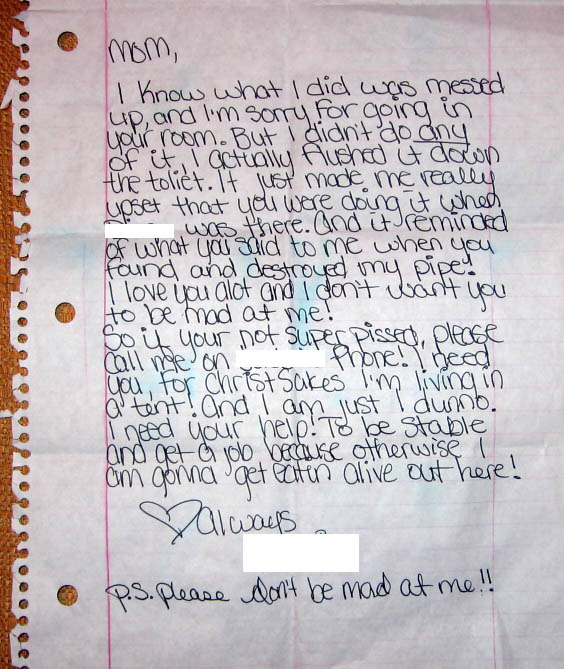 Mom,
I know what I did was messed
up, and I'm sorry for going in
your room. But I didn't do any
of it, I actually flushed it down
the toliet. It just made me really
upset that you were doing it when
was there. And it reminded
of what you said to me when you
found and destroyed my pipe!
I love you alot and I don't want you
to be mad at me!
So if your not super pissed, please
call me on Phone! I need
you, for Christ Sakes I'm living in
a tent! And I am just I dunno.
I need your help! To be stable
and get a job because otherwise I
am gonna get eatin alive out here!
♡ always
p.s. please don't be mad at me!!